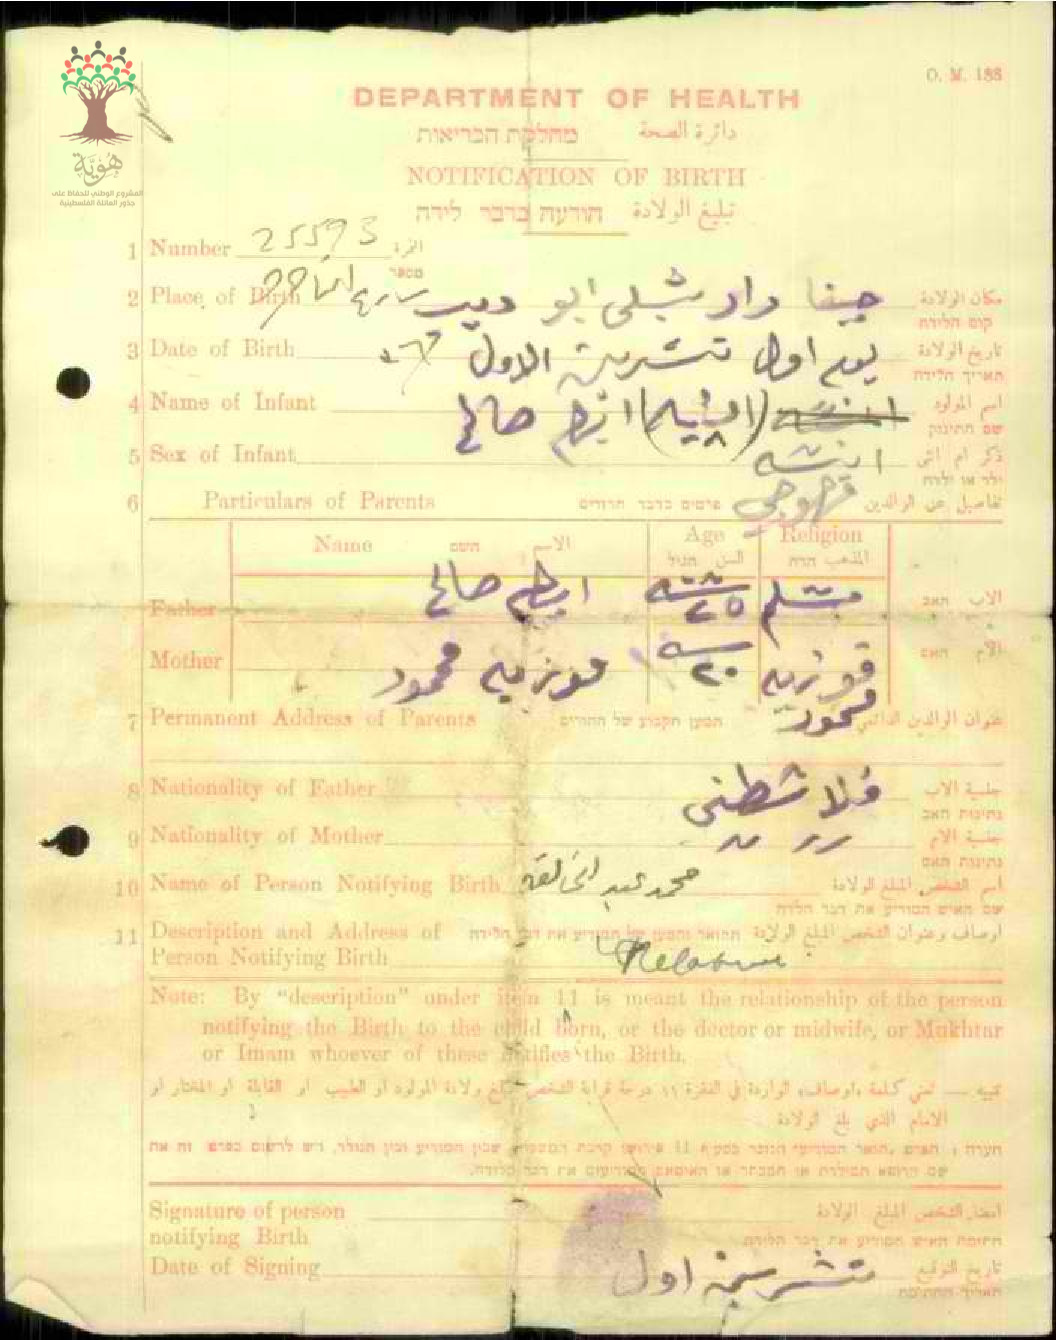 O. M. 188
هُويَّة
المشروع الوطني للحفاظ على
جذور العائلة الفلسطينية
DEPARTMENT OF HEALTH
מחלקת הבריאות دائرة الصحة
NOTIFICATION OF BIRTH
הודעה בדבר לידה تبليغ الولادة
1 Number 25593 النمرة
מספר
2 Place of Birth حيفا دار شبلي ابو ديب شارع مكان الولادة
מקום הלידה
3 Date of Birth يوم اول تشرين الاول تاريخ الولادة
תאריך הלידה
4 Name of Infant ابرهم صالح اسم المولود
שם התינוק
5 Sex of Infant انثه ذكر ام انثى
ילד או ילדה
6 Particulars of Parents פרטים בדבר ההורים قهوجي تفاصيل عن الوالدين
Name השם الاسم Age Religion
השن הגיל المذهب הדת
Father ابرهم صالح ٢٥ سنة مسلم الاب האב
Mother فوزيه محمود ٢٠ سنه فوزيه الام האם
محمود
7 Permanent Address of Parents המען הקבוע של ההורים عنوان الوالدين الدائمي
8 Nationality of Father فلاسطني جنسية الاب
נתינות האב
9 Nationality of Mother جنسية الام
נתינות האם
10 Name of Person Notifying Birth محمد عبد الخالق اسم الشخص المبلغ الولادة
שם האיש המודיע את דבר הלידה
11 Description and Address of התואר והמען של המודיע את דבר הלידה اوصاف وعنوان الشخص المبلغ الولادة
Person Notifying Birth
Note: By “description” under item 11 is meant the relationship of the person
notifying the Birth to the child born, or the doctor or midwife, or Mukhtar
or Imam whoever of these notifies the Birth.
تنبيه — تعني كلمة «اوصاف» الواردة في الفقرة ١١ درجة قرابة الشخص مبلغ ولادة المولود او الطبيب او القابلة او المختار او
الامام الذي بلغ الولادة
Signature of person امضاء الشخص المبلغ الولادة
notifying Birth חתימת האיש המודיע את דבר הלידה
Date of Signing تشرين اول تاريخ التوقيع
תאריך החתימה